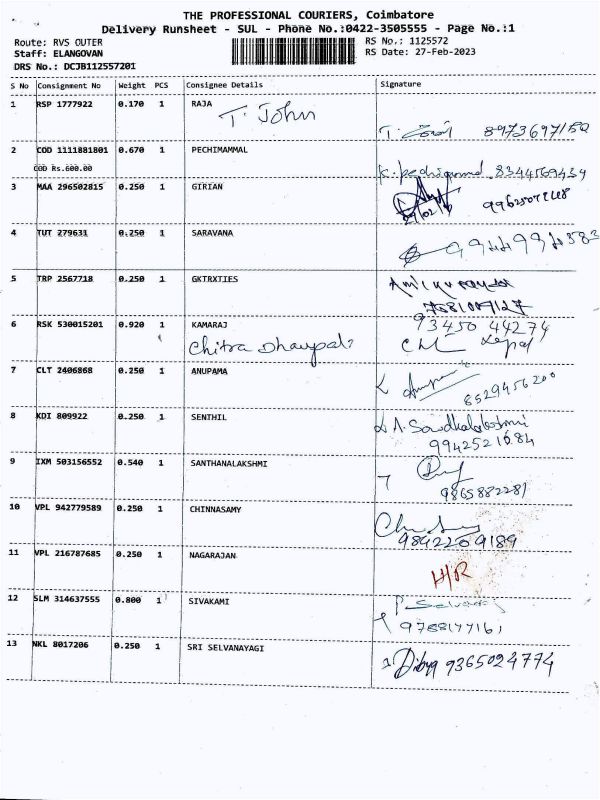 THE PROFESSIONAL COURIERS, Coimbatore
Delivery Runsheet - SUL - Phone No.:0422-3505555 - Page No.:1
Route: RVS OUTER
Staff: ELANGOVAN
DRS No.: DCJB112557201
RS No.: 1125572
RS Date: 27-Feb-2023
S No Consignment No Weight PCS Consignee Details Signature
1 RSP 1777922 0.170 1 RAJA
T. John
2 COD 1111881801 0.670 1 PECHIMAMMAL
COD Rs.600.00
8344569434
3 MAA 296502815 0.250 1 GIRIAN
4 TUT 279631 0.250 1 SARAVANA
5 TRP 2567718 0.250 1 GKTRXTIES
6 RSK 530015201 0.920 1 KAMARAJ
93450 44274
Chitra Dhanpal
7 CLT 2406868 0.250 1 ANUPAMA
8529456200
8 KDI 809922 0.250 1 SENTHIL
9942521684
9 IXM 503156552 0.540 1 SANTHANALAKSHMI
9865882281
10 VPL 942779589 0.250 1 CHINNASAMY
9842209189
11 VPL 216787685 0.250 1 NAGARAJAN
H/R
12 SLM 314637555 0.800 1 SIVAKAMI
P. Selvaraj
9788177161
13 NKL 8017206 0.250 1 SRI SELVANAYAGI
Dibya 9365024774